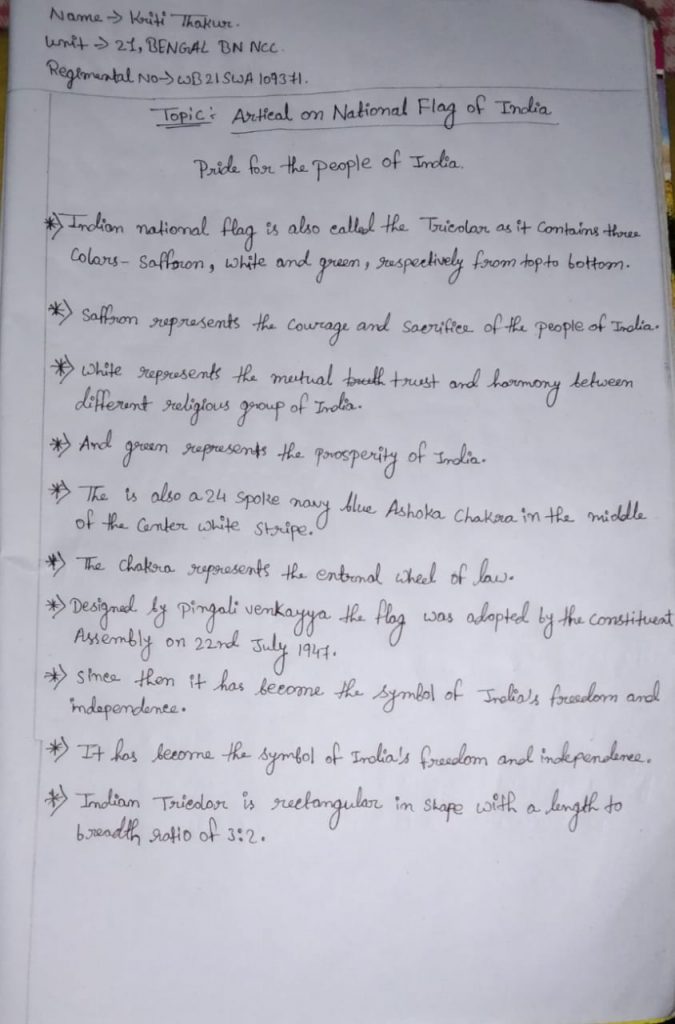 Name → Kriti Thakur.
Unit → 21, BENGAL BN NCC.
Regimental No → WB21SWA109371.
Topic: Artical on National Flag of India
Pride for the people of India.
*) Indian national flag is also called the Tricolor as it contains three
colars- Saffron, white and green, respectively from top to bottom.
*) Saffron represents the courage and sacrifice of the people of India.
*) White represents the mutual truth trust and harmony between
different religious group of India.
*) And green represents the prosperity of India.
*) The is also a 24 spoke navy blue Ashoka Chakra in the middle
of the Center white stripe.
*) The Chakra represents the enternal wheel of law.
*) Designed by Pingali venkayya the flag was adopted by the constituent
Assembly on 22nd July 1947.
*) Since then it has become the symbol of India's freedom and
independence.
*) It has become the symbol of India's freedom and independence.
*) Indian Tricolor is rectangular in shape with a length to
breadth ratio of 3:2.